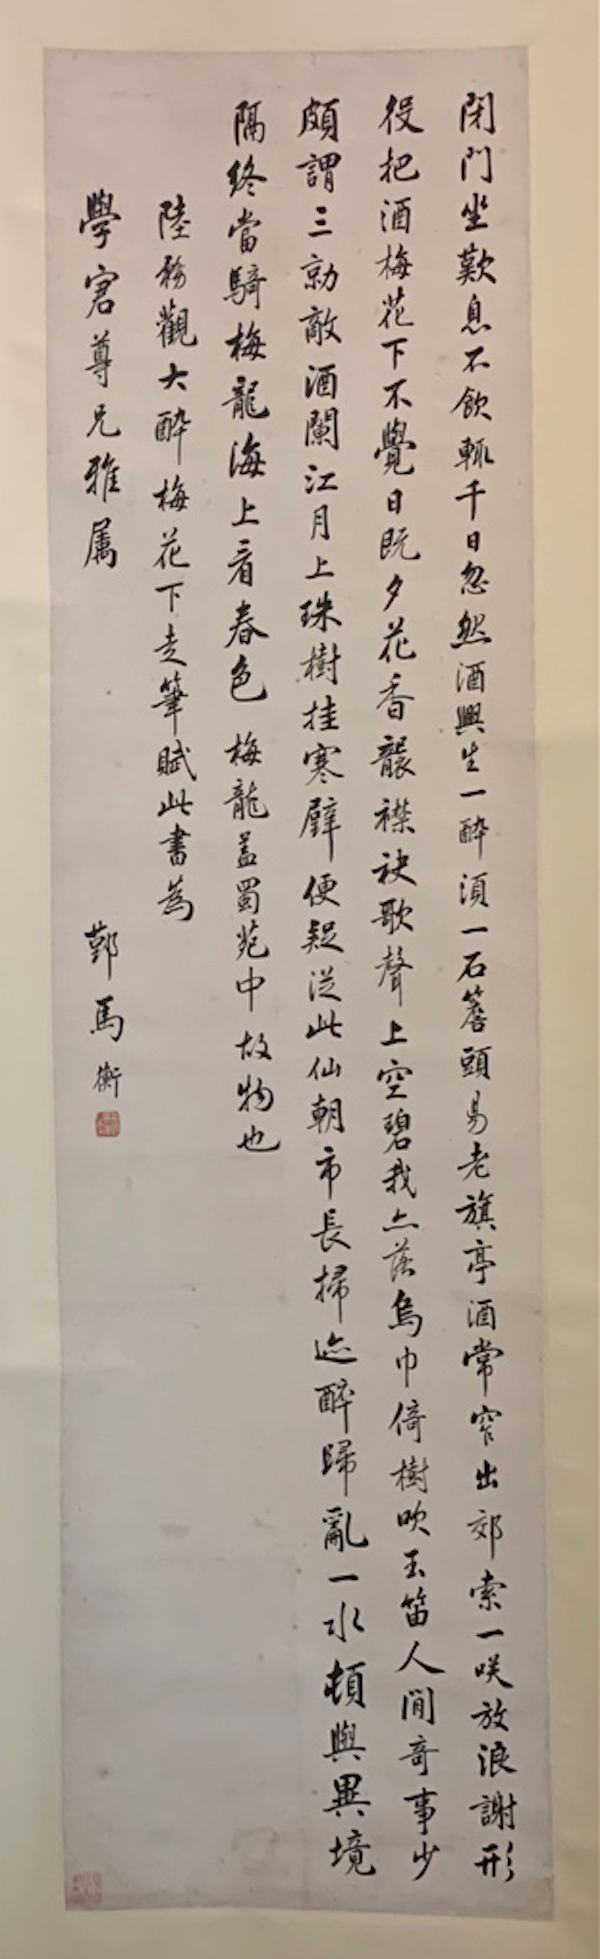 閉門坐歎息不飲輒千日忽然酒興生一醉須一石簷頭昜老旗亭酒常窄出郊索一咲放浪謝形
役把酒梅花下不覺日既夕花香襲襟袂歌聲上空碧我亦落烏巾倚樹吹玉笛人間奇事少
頗謂三勍敵酒闌江月上珠樹挂寒璧便疑從此仙朝市長掃迹醉歸亂一水頓與異境
隔終當騎梅龍海上看春色 梅龍蓋蜀苑中故物也
陸務觀大醉梅花下走筆賦此書為
學宭尊兄雅属 鄞馬衡